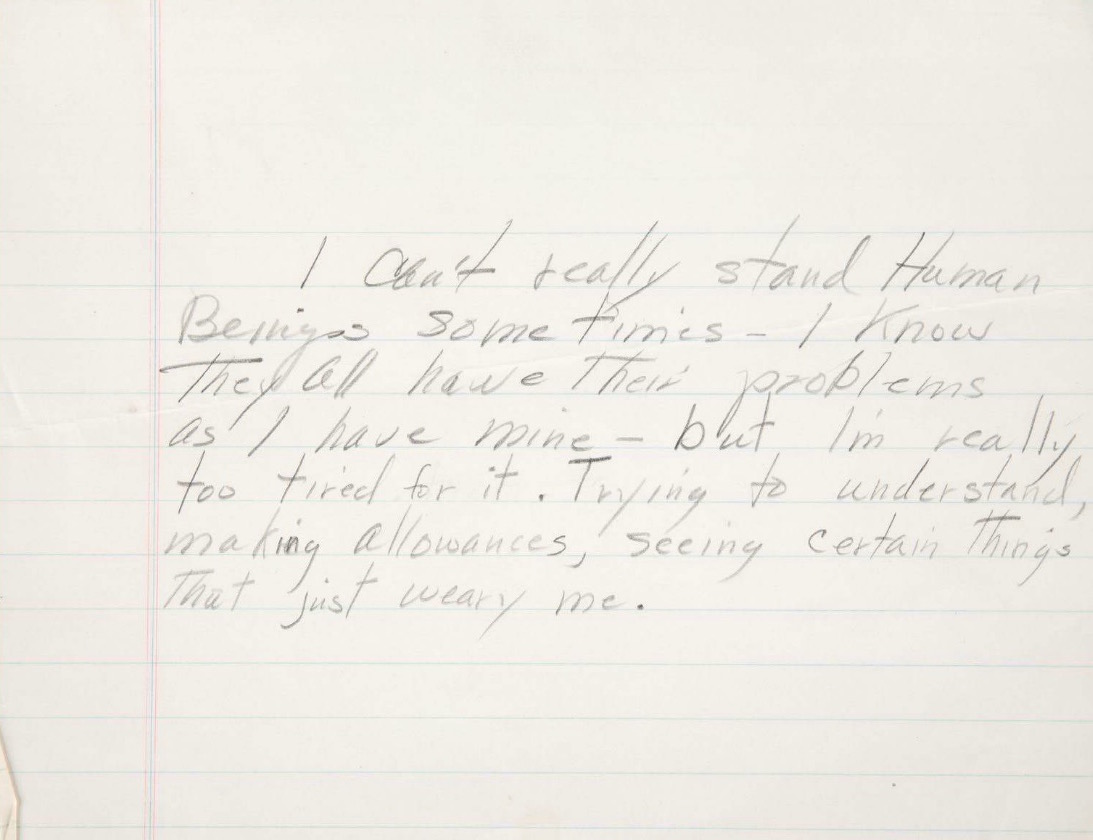 I can't really stand Human
Beings sometimes - I Know
They all have Their problems
as I have mine - but I'm really
too tired for it. Trying to understand,
making allowances, seeing certain Things
That just weary me.